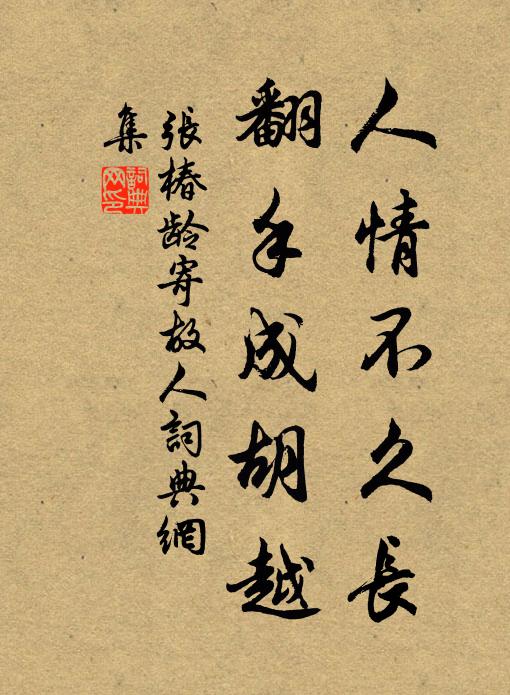 人情不久長
翻手成胡越
張椿齡寄故人詞典網
集
詞典
网印